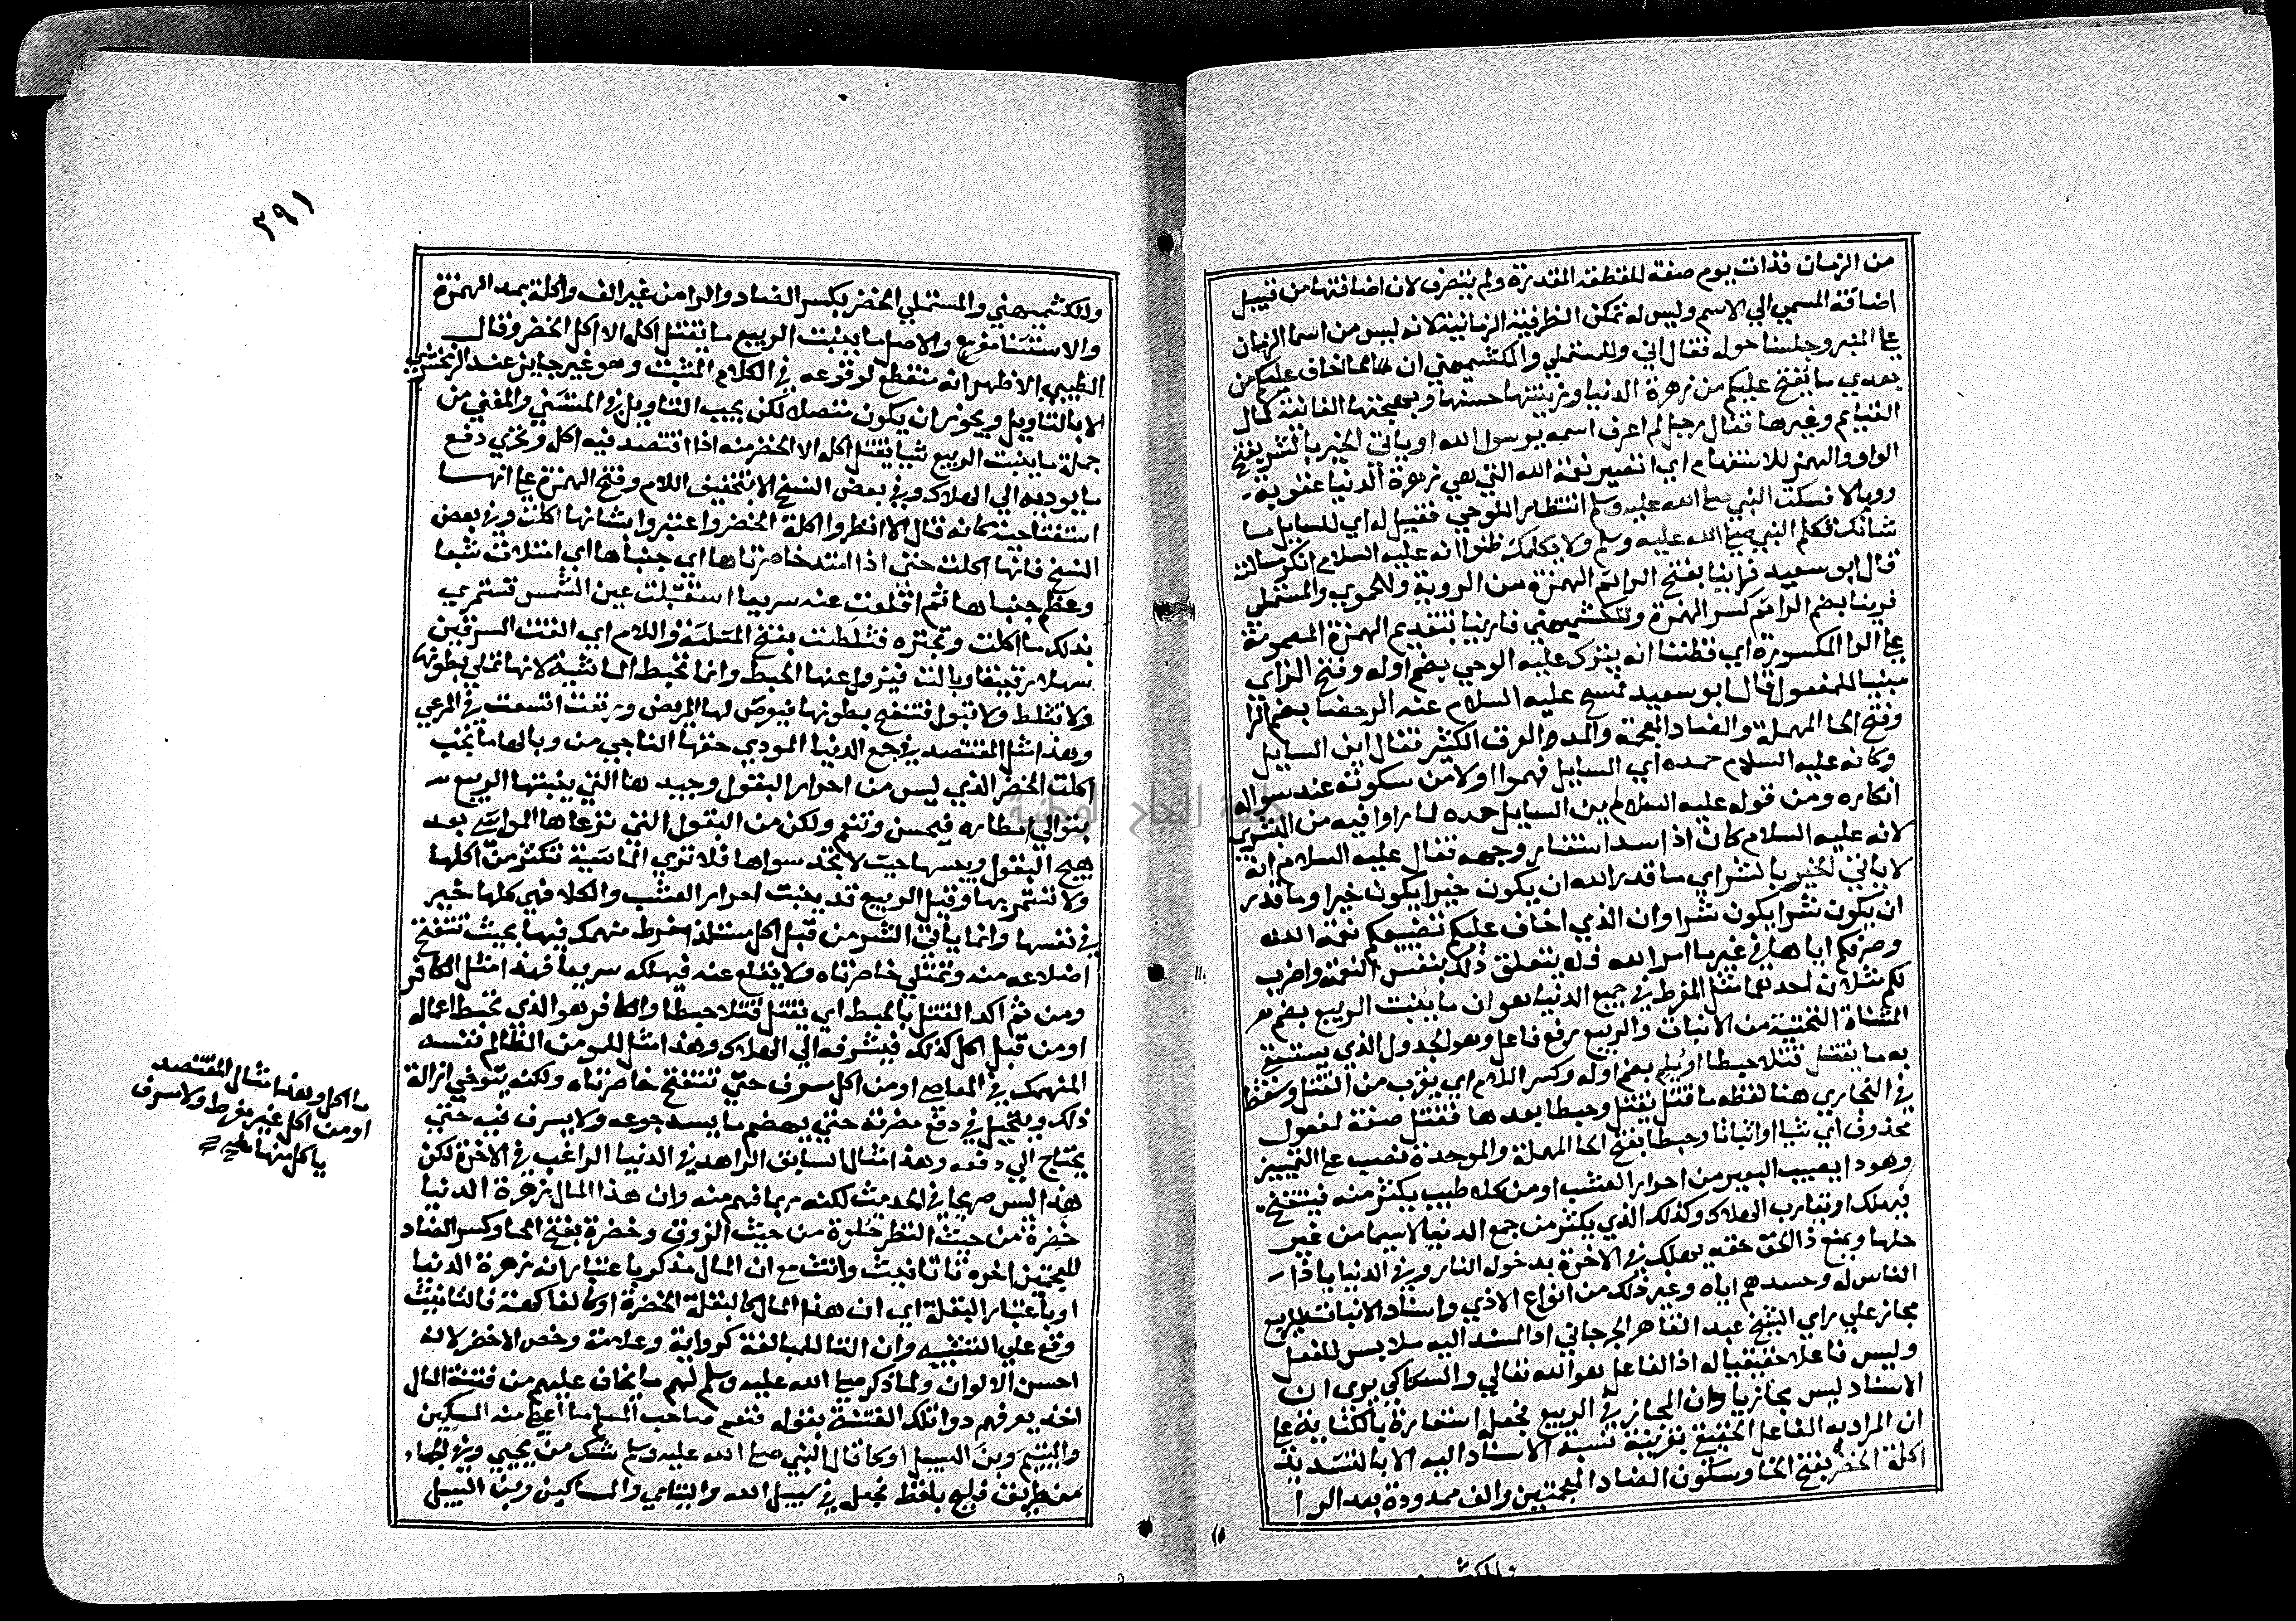 من الزمان فذات يوم صفة للقطعة المقدرة ولم يتصرف لان اضافتها من قبيل
اضافة المسمي الي الاسم وليس له تمكن الظرفية الزمانية لانه ليس من اسما الزمان
علي المنبر وجلسنا حوله فقال اني وللمستملي والكشميهني ان مما اخاف عليكم من
بعدي ما يفتح عليكم من زهرة الدنيا وزينتها حسنها وبهجتها الفانية كمال
الغنايم وغيرها فقال رجل لم اعرف اسمه يرسول الله او ياتي الخير بالشر بفتح
الواو والهمز للاستفهام اي اتصير نعمة الله التي هي زهرة الدنيا عقوبة
ووبالا فسكت النبي صلي الله عليه وسلم انتظار الوحي فقيل له اي للسايل ما
شانك تكلم النبي صلي الله عليه وسلم ولا يكلمك ظنوا انه عليه السلام انكر مسالته
قال ابو سعيد فراينا بفتح الرا ثم الهمزة من الروية وللحموي والمستملي
فرينا بضم الرا ثم كسر الهمزة وللكشميهني فارينا بتقديم الهمزة المضمومة
علي الرا المكسورة اي فظننا انه ينزل عليه الوحي بضم اوله وفتح الزاي
مبنيا للمفعول قال ابو سعيد فمسح عليه السلام عنه الرحضا بضم الرا
وفتح الحا المهملة والضاد المعجمة والمد العرق الكثير فقال اين السايل
وكانه عليه السلام حمده اي السايل فهموا اولا من سكوته عند سواله
انكاره ومن قوله عليه السلام اين السايل حمده لما راوا فيه من البشري
لانه عليه السلام كان اذا سر استنار وجهه فقال عليه السلام انه
لا ياتي الخير بالشر اي ما قدر الله ان يكون خيرا يكون خيرا وما قدر
ان يكون شرا يكون شرا وان الذي اخاف عليكم تضييعكم نعمة الله
وصرفكم اياها في غير ما امر الله فلا يتعلق ذلك بنفس النعمة واضرب
لكم مثلان احدهما مثل المفرط في جميع الدنيا هو ان ما ينبت الربيع بضم
المثناة التحتية من الانبات والربيع برفع فاعل وهو الجدول الذي يستقي
به ما يقتل قتلا حبطا او يلم بضم اوله وكسر اللام اي يقرب من القتل وسقط
في البخاري هنا لفظه ما قتل يقتل وحبطا بعدها فتقتل صفة لمفعول
محذوف اي شيا او نباتا وحبطا بفتح الحا المهملة والموحدة نصب علي التمييز
وهو دا يصيب البعير من احرار العشب او من كلا طيب يكثر منه فينتفخ
فيهلك او يقارب الهلاك وكذلك الذي يكثر من جمع الدنيا لاسيما من غير
حلها ويمنع ذا الحق حقه يهلك في الاخرة بدخوله النار وفي الدنيا باذا
الناس له وحسدهم اياه وغير ذلك من انواع الاذي واسناد الانبات للربيع
مجاز علي راي الشيخ عبد القاهر الجرجاني اذ المسند اليه ملابس للفعل
وليس فاعلا حقيقيا له اذ الفاعل هو الله تعالي والسكاكي يري ان
الاسناد ليس مجازيا وان المجاز في الربيع فجعل استعارة بالكناية علي
ان المراد به الفاعل الحقيقي بقرينة نسبة الاسناد اليه الا بالتشديد
اكلة الخضر بفتح الخا وسكون الضاد المعجمتين والف ممدودة بعد الرا
وللكشميهني
٢٩١
وللكشميهني والمستملي الخضر بكسر الضاد والرا من غير الف واكلة بمد الهمزة
والاستثنا مفرغ والاصل ما ينبت الربيع ما يقتل اكله الا اكل الخضر وقال
الطيبي الاظهر انه منقطع لوقوعه في الكلام المثبت وهو غير جايز عند الزمخشري
الا بالتاويل ويجوز ان يكون متصلا لكن يجب التاويل في المستثني والمعني من
جملة ما ينبت الربيع شيا يقتل اكله الا الخضر منه اذا اقتصد فيه اكله وتحري دفع
ما يوديه الي الهلاك وفي بعض النسخ الا بتخفيف اللام وفتح الهمزة علي انها
استفتاحية كانه قال الا انظروا اكلة الخضر واعتبروا بشانها اكلت وفي بعض
النسخ فانها اكلت حتي اذا امتد خاصرتاها اي جنباها اي امتلات شبعا
وعظم جنباها ثم اقلعت عنه سريعا استقبلت عين الشمس تستمري
بذلك ما اكلت وتجتره فثلطت بفتح المثلثة واللام اي القت السرقين
سهلا رقيقا وبالت فيزول عنها الحبط وانما تحبط الماشية لانها تمتلي بطونها
ولا تثلط ولا تبول فتنتفخ بطونها فيعرض لها المرض ورتعت اتسعت في المرعي
وهذا مثل المقتصد في جمع الدنيا المودي حقها الناجي من وبالها ما نجت
اكلت الخضر الذي ليس من احرار البقول وجيدها التي ينبتها الربيع
بتوالي امطاره فيحسن وتنعم ولكن من البقول التي ترعاها المواشي بعد
هيج البقول ويبسها حيث لا تجد سواها فلا تري الماشية تكثر من اكلها
ولا تستمريها وقيل الربيع قد ينبت احرار العشب والكلا فهي كلها خير
في نفسها وانما ياتي الشر من قبل اكل مستلذ مفرط منهمك فيها بحيث تنتفخ
اضلاعه منه وتمتلي خاصرتاه ولا يقلع عنه فيهلكه سريعا فهذا مثل الكافر
ومن ثم اكد القتل بالحبط اي يقتل قتلا حبطا والكافر هو الذي تحبط اعماله
او من قبل اكل كذلك فيشرفه الي الهلاك وهذا مثل للمومن الظالم نفسه
المنهمك في المعاصي او من اكل مسرف حتي تنتفخ خاصرتاه ولكنه يتوخي ازالة
ذلك ويتحيل في دفع مضرته حتي يهضم ما يسد جوعه ولا يسرف فيه حتي
يحتاج الي دفعه وهذا مثال السابق الزاهد في الدنيا الراغب في الاخرة لكن
هذا ليس صريحا في الحديث لكنه ربما فهم منه وان هذا المال زهرة الدنيا
خضرة من حيث النظر حلوة من حيث الذوق وخضرة بفتح الخا وكسر الضاد
المعجمتين اخره تا تانيث وانث مع ان المال مذكر باعتبار انه زهرة الدنيا
او باعتبار البقلة اي ان هذا المال كالبقلة الخضرة او كالفاكهة فالتانيث
وقع علي التشبيه وان التا للمبالغة كرواية وعلامة وخص الاخضر لانه
احسن الالوان ولما ذكر صلي الله عليه وسلم لهم ما يخاف عليهم من فتنة المال
اخذ يعرفهم دوا تلك الفتنة بقوله فنعم صاحب المسلم ما اعطي منه المسكين
واليتيم وبن السبيل او كما قال النبي صلي الله عليه وسلم شك من يحيي وفي الجهاد
من طريق فليح بلفظ فجعله في سبيل الله واليتامي والمساكين وبن السبيل
ما اكل وهذا مثال المقتصد
او من اكل غير مفرط ولا مسرف
ياكل منها